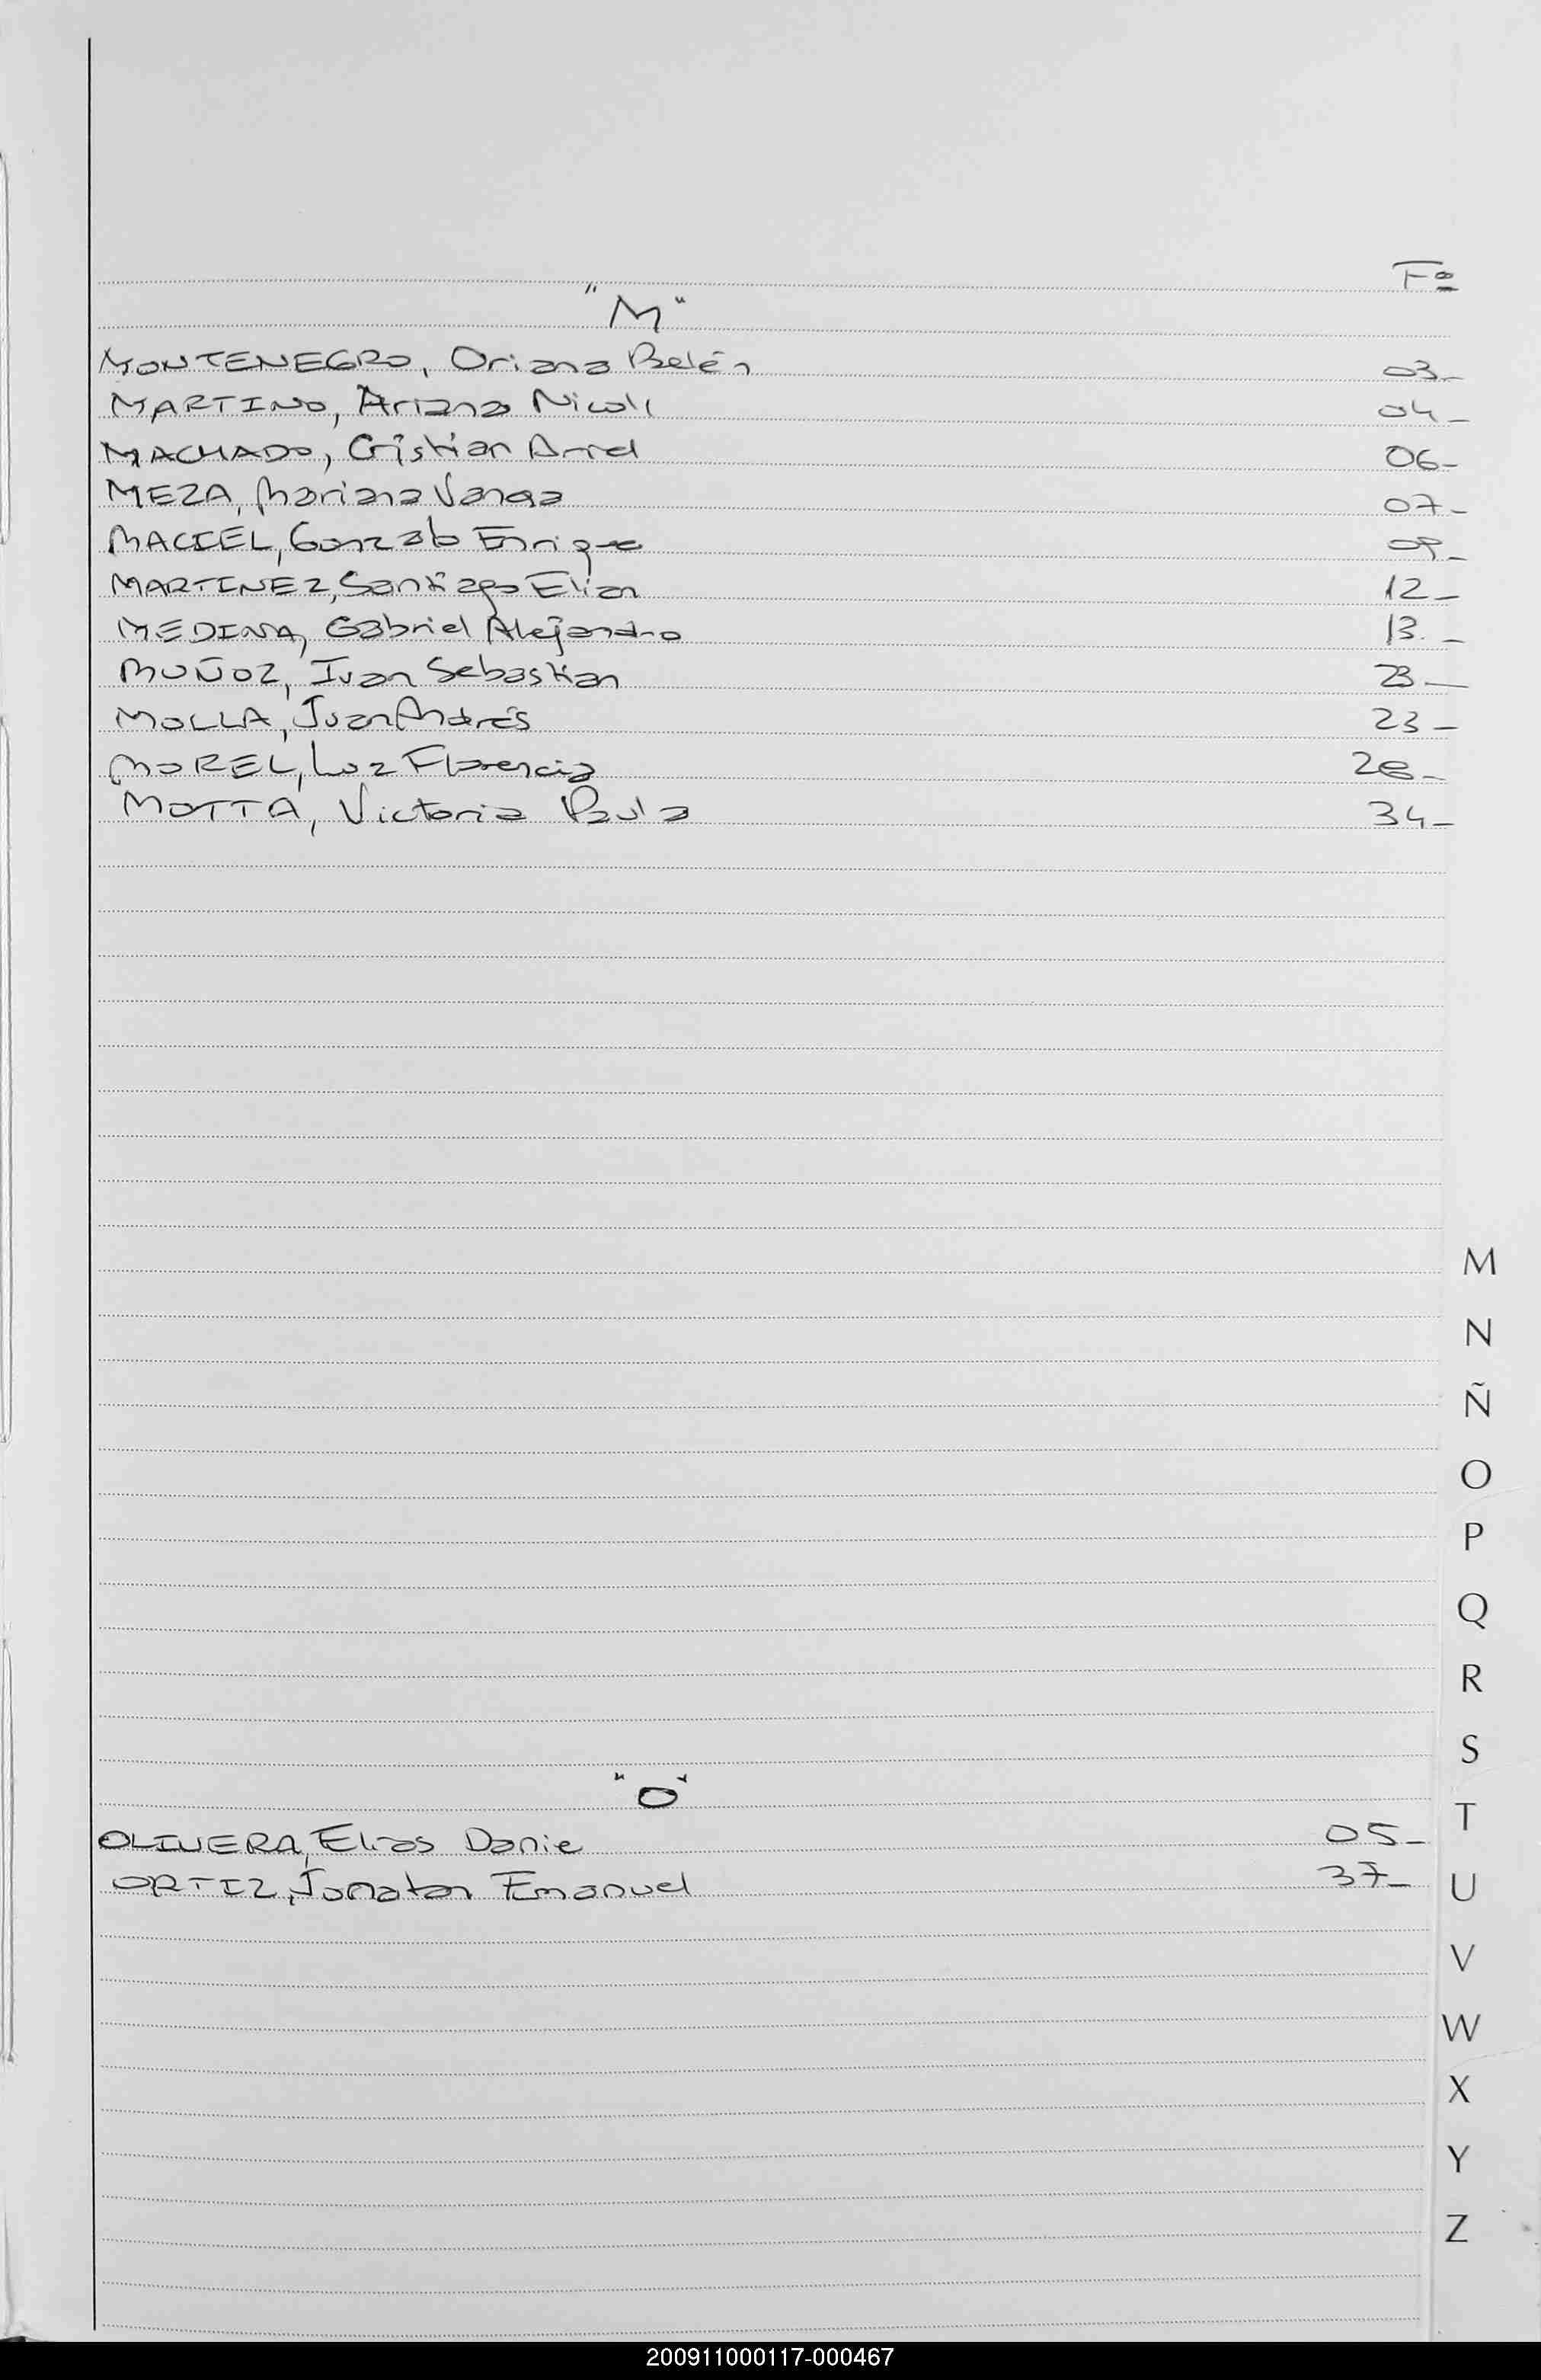 Fº
"M"
MONTENEGRO, Oriana Belén 03-
MARTINO, Ariana Nicoll 04-
MACHADO, Cristian Arriel 06-
MEZA, Mariana Vanesa 07-
MACIEL, Gonzalo Enrique 09-
MARTINEZ, Santiago Elian 12-
MEDINA, Gabriel Alejandro 13.-
MUÑOZ, Ivan Sebastian 23-
MOLLA, Juan Andrés 23-
MOREL, Luz Florencia 26-
MOTTA, Victoria Paula 34-
M
N
Ñ
O
P
Q
R
S
"O"
T
OLIVERA, Elias Danie 05-
ORTIZ, Jonatan Emanuel 37-
U
V
W
X
Y
Z
200911000117-000467